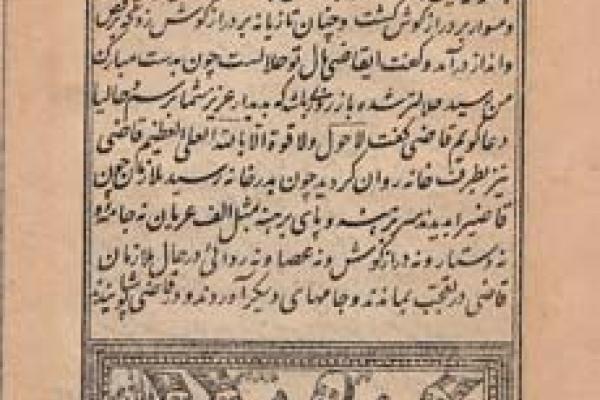 و سوار بر دراز گوش گشت و چنان تازیانه بر دراز گوش زد که برقص
و انداز در آمد و گفت ایقاضی مال تو حلالست چون بدست مبارک
من رسید حلالتر شده باز روزی باشد که بدیدار عزیز شما برسم حالیا
دعا گویم قاضی گفت لا حول ولا قوة الا بالله العلی العظیم قاضی
نیز بطرف خانه روان گردید چون بدر خانه رسید ملازمان چون
قاضیرا بدیدند سر برهنه و پای برهنه بمثل الف عریان نه جامهٔ و
نه دستار و نه دراز گوش و نه عصا و نه ردائی در حال ملازمان
قاضی در تعجب بماندند و جامهای دیگر آوردند و در قاضی پوشانیدند